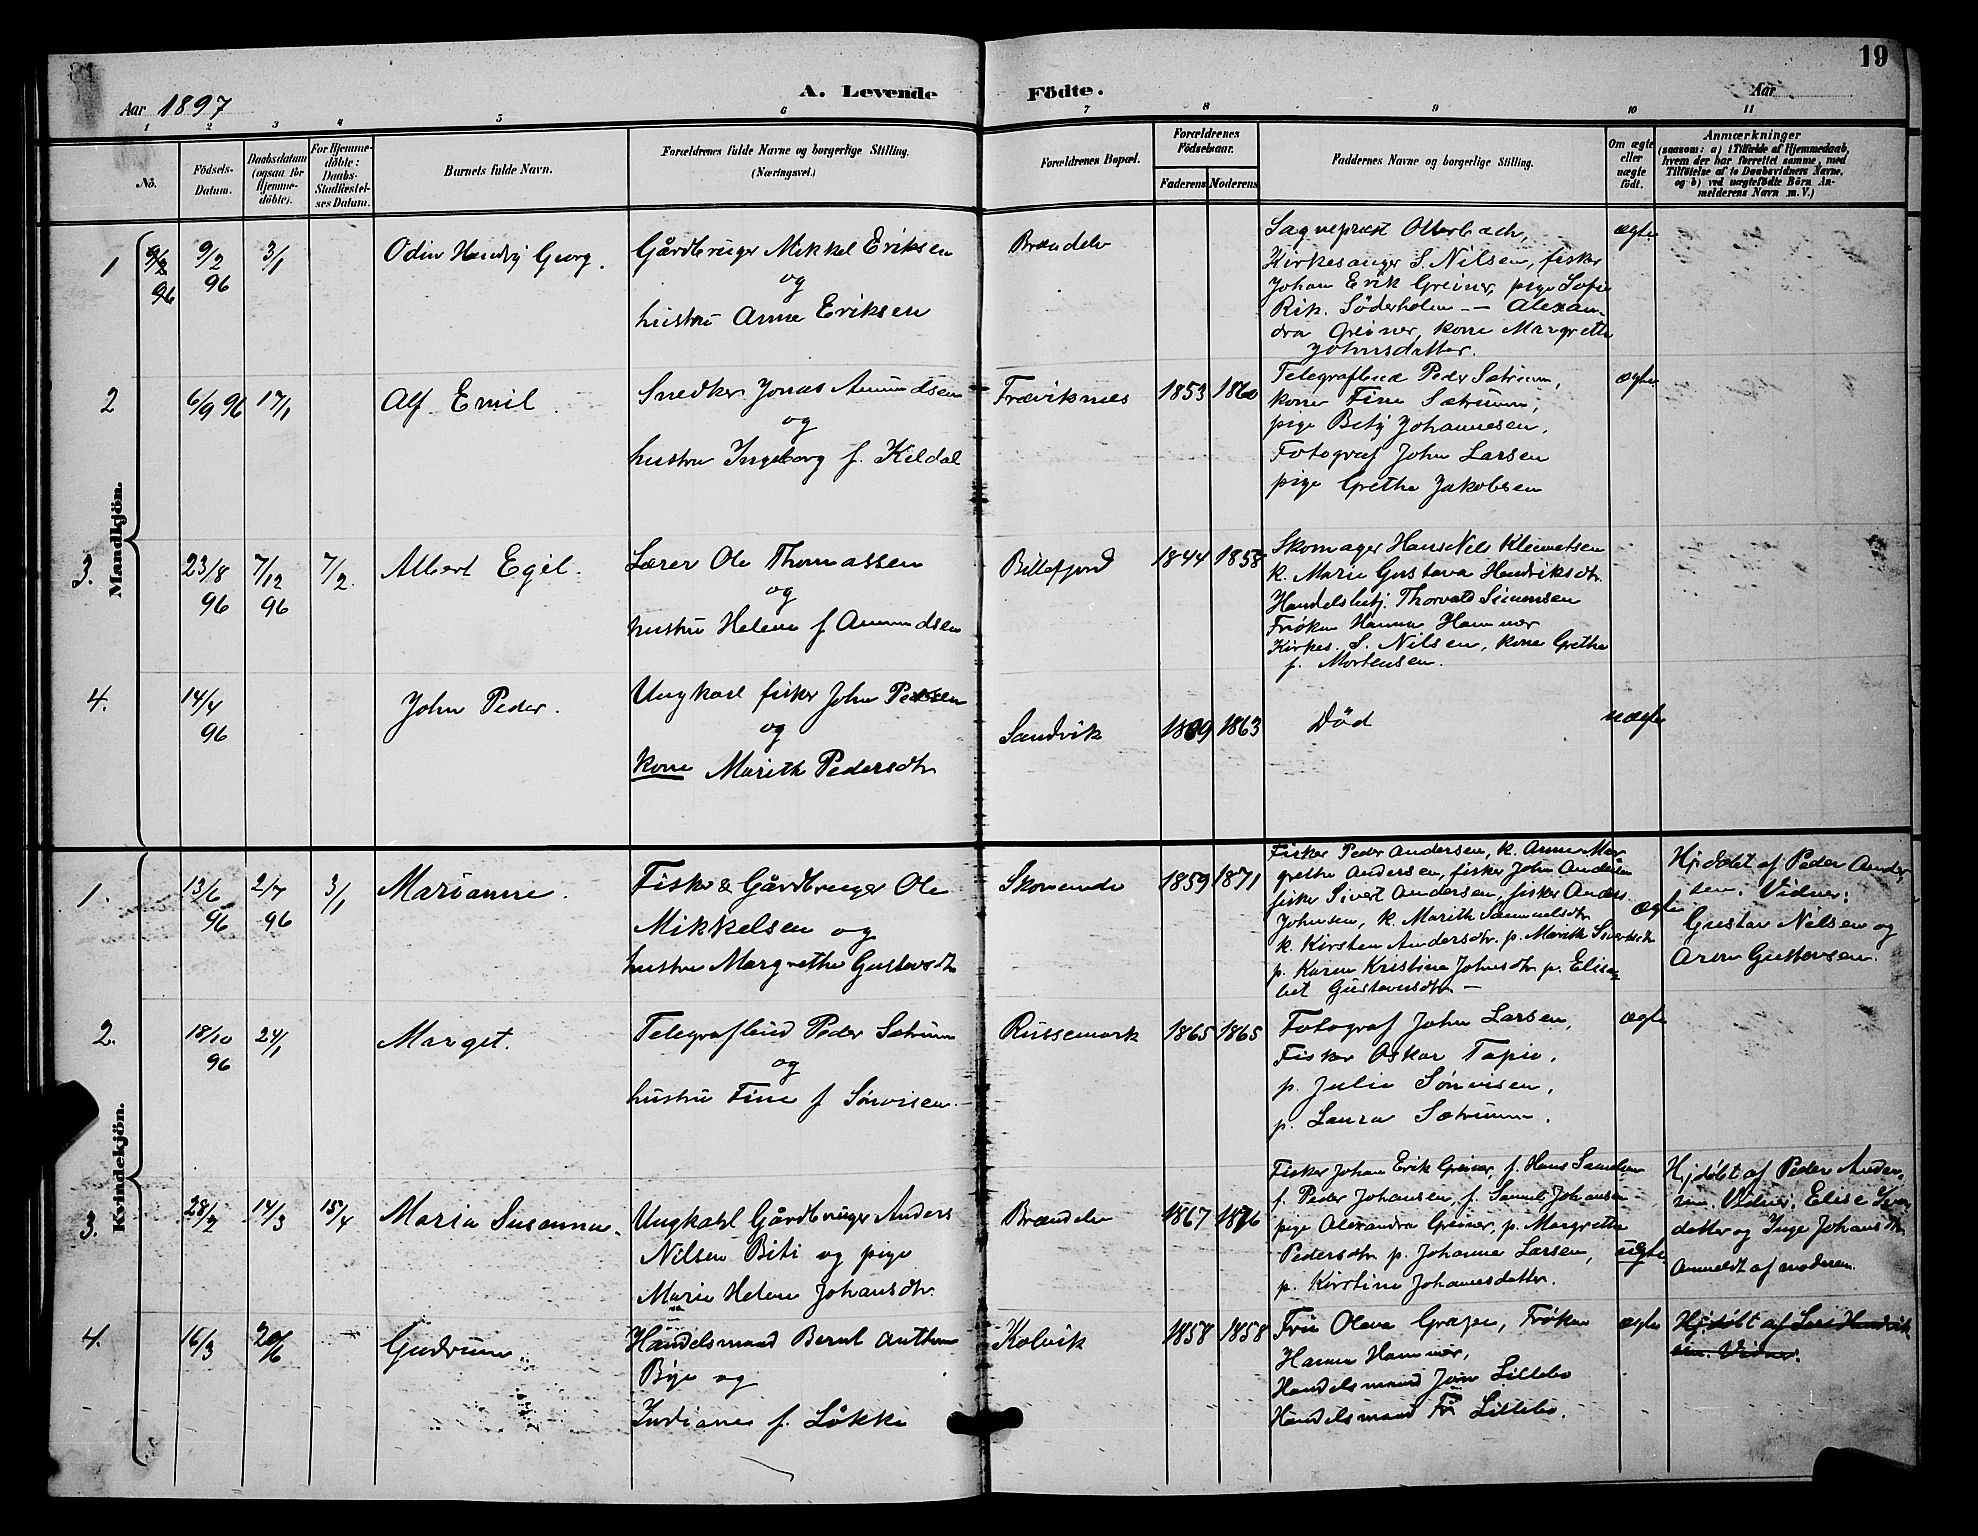 19
Aar 1897
A. Levende Födte.
Aar
1 2 3 4 5 6 7 8 9 10 11
No.
Födsels-Datum.
Daabsdatum (ogsaa for Hjemme-döbte).
For Hjemme-döbte: Daabs-Stadfæstel-ses Datum.
Barnets fulde Navn.
Forældrenes fulde Navne og borgerlige Stilling.
(Næringsvei.)
Forældrenes Bopæl.
Forældrenes Födselsaar.
Faderens Moderens
Faddernes Navne og borgerlige Stilling.
Om ægte eller uægte födt.
Anmærkninger
(saasom: a) i Tilfælde af Hjemmedaab,
hvem der har forrettet samme, med
Tilföielse af to Daabsvidners Navne,
og b) ved uægtefödte Börn An-
melderens Navn m. V.)
Mandkjön.
1 9/2 96 9/2 96 3/1
Odin Georg.
Gårdbruger Mikkel Eriksen
og
hustru Anna Eriksen
Brændelv
Sognepræst Otterbech,
Kirkesanger S. Nilsen, fisker
Johan Erik Greiner, pige Sofie
Rik. Söderholm — Alexan-
dra Greiner, kone Margrethe
Johnsdatter.
ægte
2 6/9 96 17/1
Alf Emil.
Snedker Jonas Amundsen
og
hustru Ingeborg f. Kildal
Træviknes
1853 1860
Telegrafbud Peder Sætrum,
kone Fine Sætrum,
pige Johannesen,
Fotograf John Larsen
pige Grethe Jakobsen
ægte
3. 23/8 96 7/12 96 7/2
Albert Egil.
Lærer Ole Thomassen
og
hustru Helene f Amundsen
Billefjord
1844 1858
Skomager Hans Nils Klemetsen
k. Marie Gustava Hendriksdtr.
Handelsbetj. Thorvald Simonsen
Frøken Hanna Hammer
Kirkes. S. Nilsen, kone Grethe
f. Mortensen.
4. 14/4 96
John Peder.
Ungkarl fisker John Persen
og
kone Marith Pedersdtr
Sandvik
1863
Død
uægte
Kvindekjön.
1. 13/6 96 2/7 96 3/1
Marianne.
Fisker & Gårdbruger Ole
Mikkelsen og
hustru Margrethe Gustavsdtr
1859 1871
Fisker Peder Andersen, k. Anne Mar-
grethe Andersen, fisker John Andersen
fisker Sivert Andersen, fisker Anders
Johnsen, k. Marith Samuelsdtr
k. Kirsten Andersdtr. p. Marith Sivertsdtr
p. Karen Kristine Johnsdtr p. Elisa-
bet Gustavsdtr. —
ægte
Hjdøbt af Peder Ander-
sen. Vidner:
Gustav Nilsen og
Aron Gustavsen.
2. 18/10 96 24/1
Marget.
Telegrafbud Peder Sætrum
og
hustru Fine f Sørvisen.
Russemark
1865 1865
Fotograf John Larsen,
Fisker Oskar Tapio,
p. Julie Sørvisen,
p. Laura Sætrum.
ægte
3. 28/2 14/3 15/4
Maria Susanna.
Ungkarl Gårdbruger Anders
Nilsen Biti og pige
Marie Helene Johansdtr.
Brændelv
1867 1876
Fisker Johan Erik Greiner, f. Hans Samuelsen
f. Peder Johansen, f. Samuel Johansen
pige Alexandra Greiner, p. Margrethe
Pedersdtr p. Johanna Larsen,
p. Kirstine Johannesdatter.
uægte
Hjdøbt af Peder Ander-
sen. Vidner: Elise
datter og Inge Johansdtr.
Anmeldt af moderen.
4. 16/3 20/6
Gudrun.
Handelsmand Bernt Anthon
Bye og
f. Løkke
Kolvik
1858 1858
Fru Olava Frøken
Hanna Hammer,
Handelsmand John Lillebo
Handelsmand Lillebo.
ægte
Hjdøbt af Lars Hendrik-
sen. Vidner: